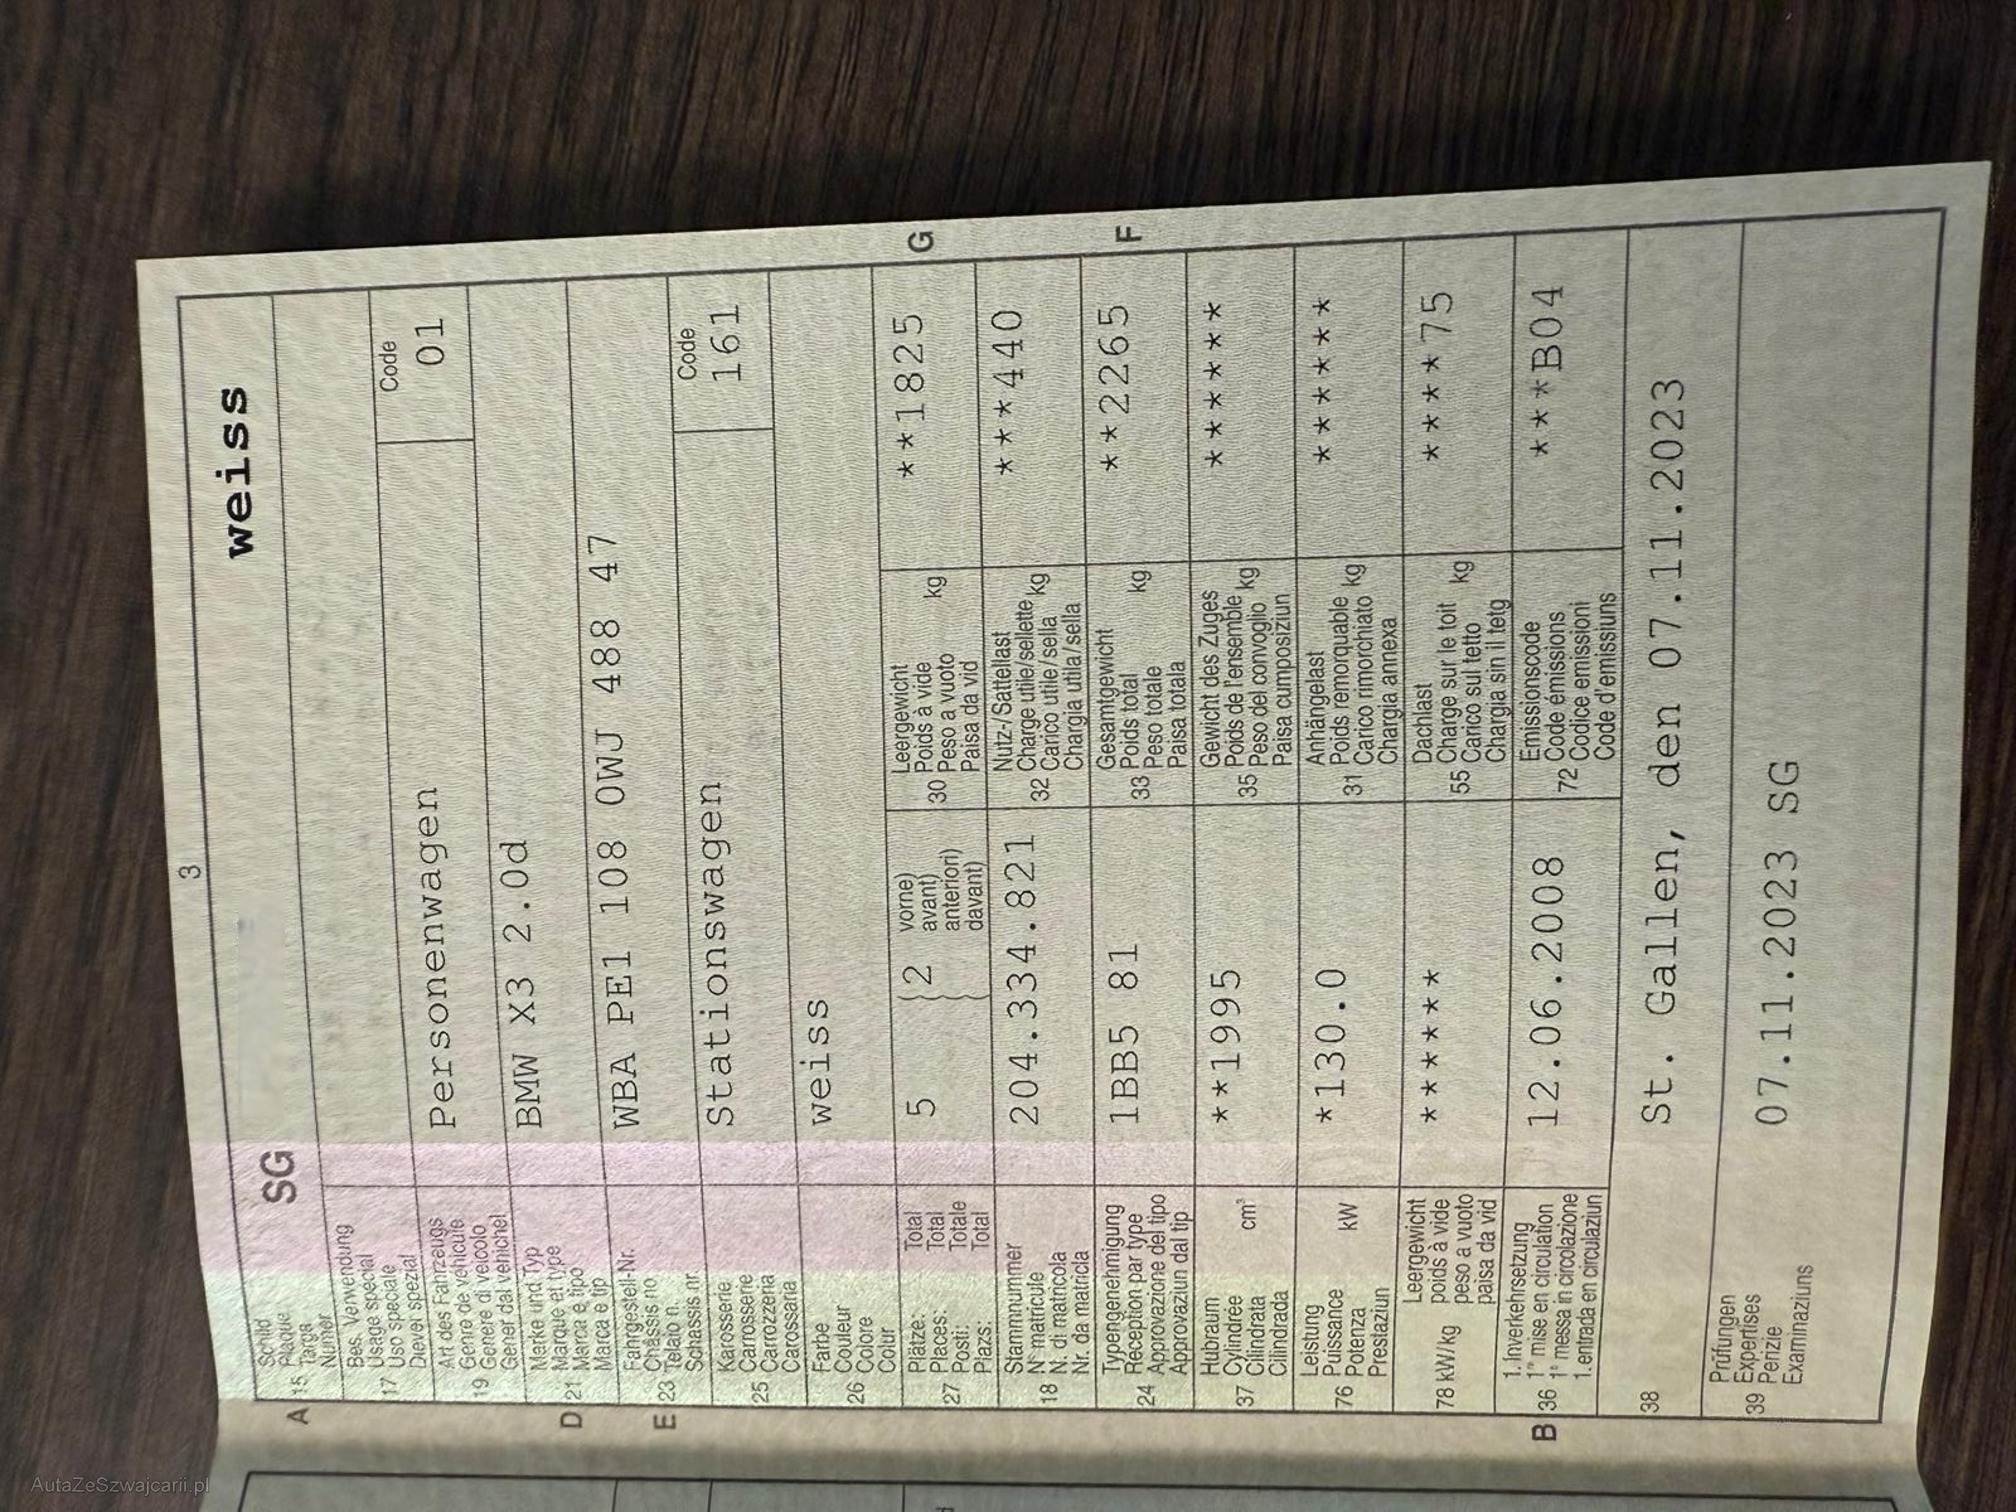 3
A 15 Schild
Plaque
Targa
Numer
SG
weiss
17 Bes. Verwendung
Usage spécial
Uso speciale
Diever spezial
19 Art des Fahrzeugs
Genre de véhicule
Genere di veicolo
Gener dal vehichel
Personenwagen
Code
01
D 21 Marke und Typ
Marque et type
Marca e tipo
Marca e tip
BMW X3 2.0d
E 23 Fahrgestell-Nr.
Châssis no
Telaio n.
Schassis nr.
WBA PE1 108 0WJ 488 47
25 Karosserie
Carrosserie
Carrozzeria
Carossaria
Stationswagen
Code
161
26 Farbe
Couleur
Colore
Colur
weiss
27 Plätze: Total
Places: Total
Posti: Totale
Plazs: Total
5 (2 vorne)
avant)
anteriori)
davant)
30 Leergewicht
Poids à vide
Peso a vuoto
Paisa da vid
kg
**1825
G
18 Stammnummer
N° matricule
N. di matricola
Nr. da matricla
204.334.821
32 Nutz-/Sattellast
Charge utile/sellette
Carico utile/sella
Chargia utila/sella
kg
***440
24 Typengenehmigung
Réception par type
Approvazione del tipo
Approvaziun dal tip
1BB5 81
33 Gesamtgewicht
Poids total
Peso totale
Paisa totala
kg
**2265
F
37 Hubraum
Cylindrée
Cilindrata
Cilindrada
cm³
**1995
35 Gewicht des Zuges
Poids de l'ensemble
Peso del convoglio
Paisa cumposiziun
kg
******
76 Leistung
Puissance
Potenza
Prestaziun
kW
*130.0
31 Anhängelast
Poids remorquable
Carico rimorchiato
Chargia annexa
kg
******
78 kW/kg Leergewicht
poids à vide
peso a vuoto
paisa da vid
******
55 Dachlast
Charge sur le toit
Carico sul tetto
Chargia sin il tetg
kg
****75
B 36 1. Inverkehrsetzung
1re mise en circulation
1a messa in circolazione
1. entrada en circulaziun
12.06.2008
72 Emissionscode
Code émissions
Codice emissioni
Code d'emissiuns
***B04
38
St. Gallen, den 07.11.2023
39 Prüfungen
Expertises
Perizie
Examinaziuns
07.11.2023 SG
AutaZeSzwajcarii.pl